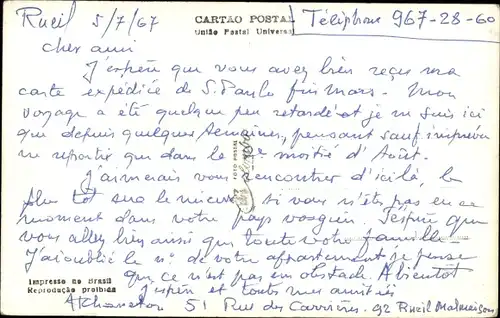 Rueil 5/7/67
CARTÃO POSTAL
União Postal Universal
Téléphone 967-28-60
cher ami
J'espère que vous avez bien reçu ma
carte expédiée de S. Paulo fin mars. Mon
voyage a été quelque peu retardé et je suis ici
que depuis quelques semaines, pensant sauf imprévu
ne repartir que dans la 2e moitié d'Août.
J'aimerais vous rencontrer d'ici là, le
plus tôt sera le mieux si vous n'êtes pas en ce
moment dans votre pays vosgien. J'espère que
vous allez bien ainsi que toute votre famille
J'ai oublié le n° de votre appartement je pense
que ce n'est pas un obstacle. A bientôt
j'espère et toutes mes amitiés
51 Rue des Carrières. 92 Rueil Malmaison
Impresso no Brasil
Reprodução proibida
FOTO POSTAL